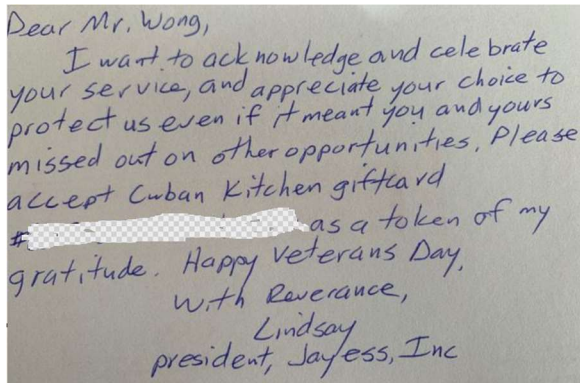 Dear Mr. Wong,
I want to acknowledge and celebrate
your service, and appreciate your choice to
protect us even if it meant you and yours
missed out on other opportunities. Please
accept Cuban Kitchen giftcard
# as a token of my
gratitude. Happy Veterans Day.
With Reverance,
Lindsay
president, Jayess, Inc